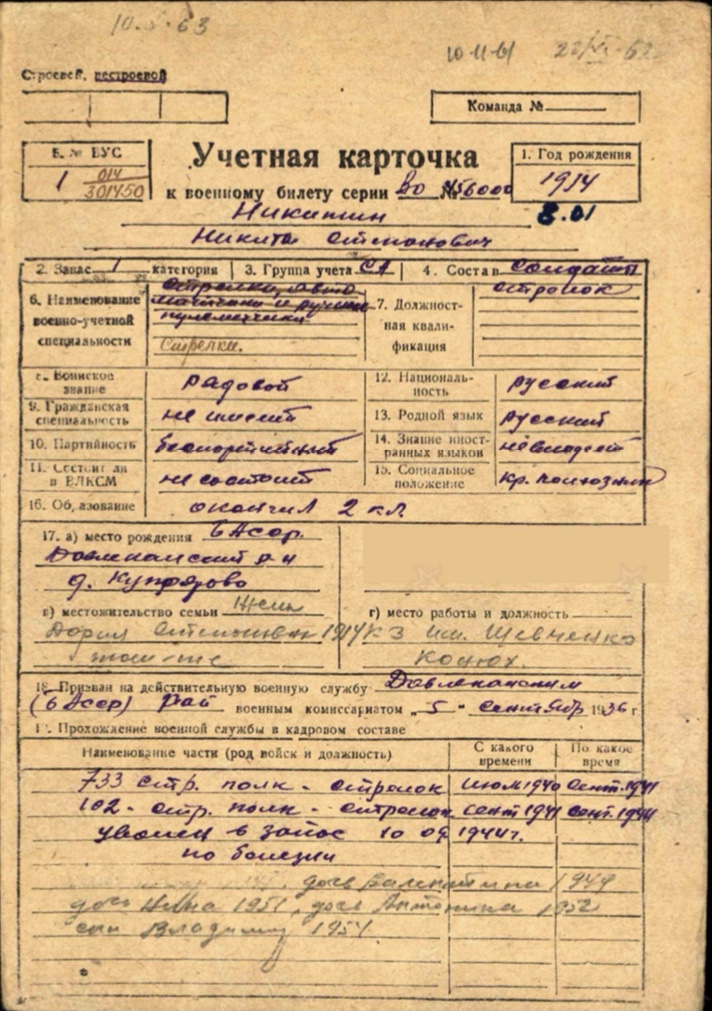 10.5.63
10-11-61
Строевой, нестроевой
Команда №
5. № ВУС
1 014
301450
Учетная карточка
1. Год рождения
1914
к военному билету серии Во №
8.01
Никитин
Никита Степанович
2. Запас 1 категория 3. Группа учета СА 4. Состав солдаты
6. Наименование военно-учетной специальности
Стрелки.
7. Должностная квалификация
стрелок
8. Воинское звание рядовой
12. Национальность русский
9. Гражданская специальность не имеет
13. Родной язык русский
10. Партийность беспартийный
14. Знание иностранных языков не владеет
11. Состоит ли в ВЛКСМ не состоит
15. Социальное положение
16. Образование окончил 2 кл.
17. а) место рождения БАсср.
Давлекановский р-н
д.
в) местожительство семьи Жена
г) место работы и должность
Дария Степановна 1914
К-З им. Шевченко
там-же
Конюх.
18. Призван на действительную военную службу Давлекановским
(БАсср) Рай военным комиссариатом „5" сентябр 1936 г
19. Прохождение военной службы в кадровом составе
Наименование части (род войск и должность)
С какого времени
По какое время
733 стр. полк - стрелок июль 1940 сент. 1941
102 - стр. полк - стрелок сент 1941 сент. 1944
уволен в запас 10 09 1944г.
по болезни
дочь Валентина 1949
дочь Нина 1951, дочь Антонина 1952
сын Владимир 1954